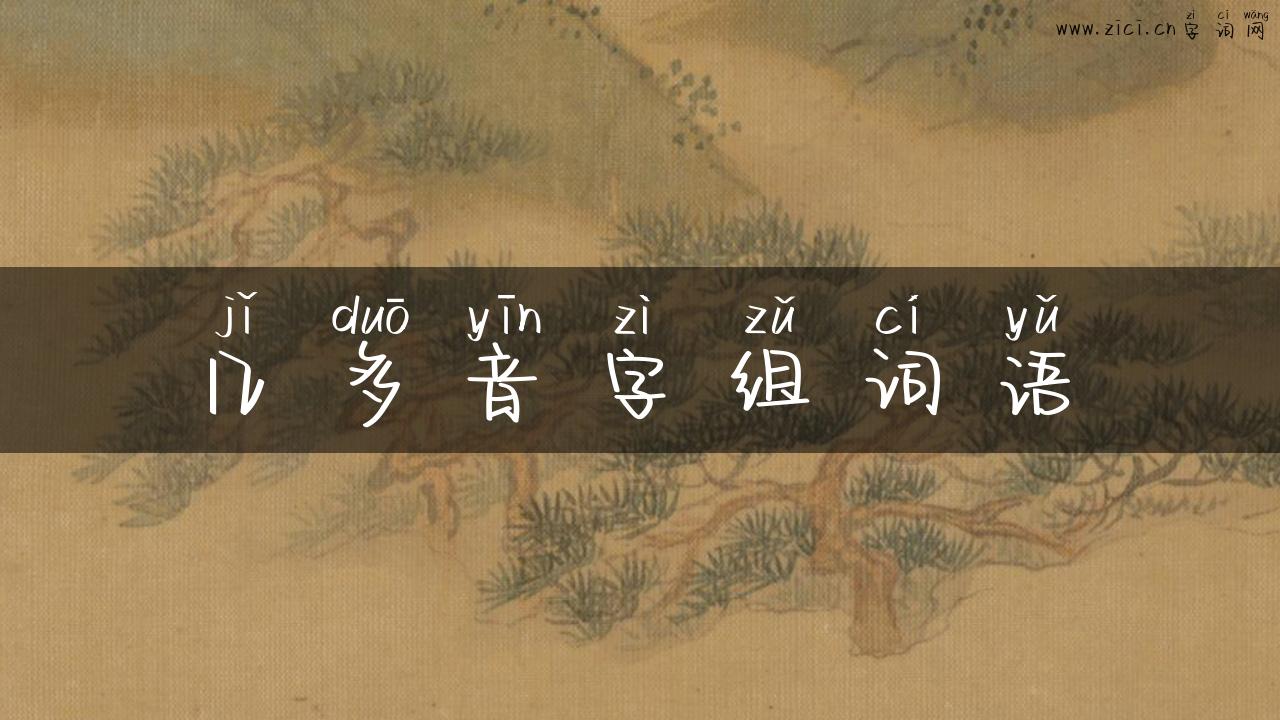 zì cí wǎng
www.zici.cn 字词网
jǐ duō yīn zì zǔ cí yǔ
几多音字组词语